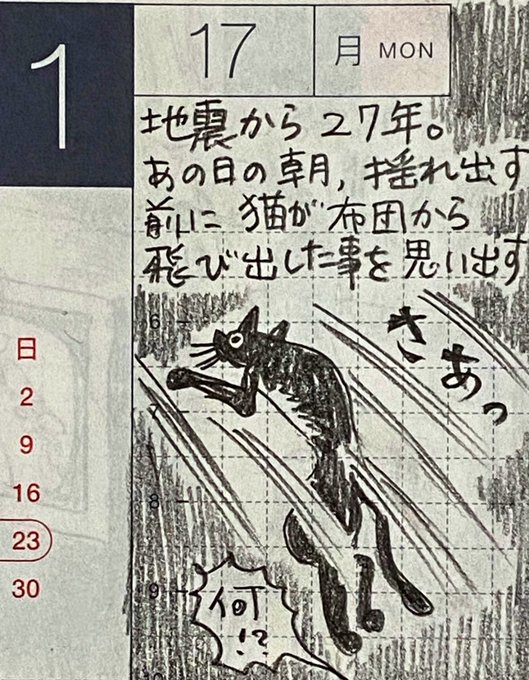 1
17
月 MON
地震から27年。
あの日の朝,揺れ出す
前に猫が布団から
飛び出した事を思い出す
日
2
9
16
23
30
6
7
8
9
10
さあっ
何!?